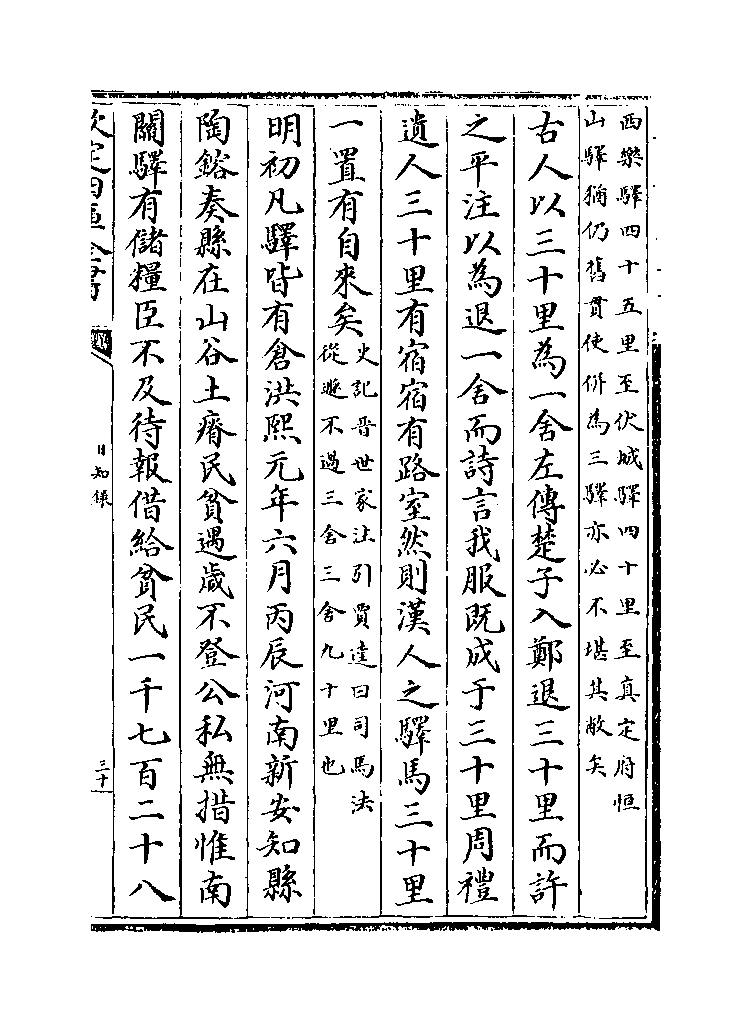 西樂驛四十五里至伏城驛四十里至真定府恒
山驛猶仍舊貫使併為三驛亦必不堪其敝矣
古人以三十里為一舍左傳楚子入鄭退三十里而許
之平注以為退一舍而詩言我服既成于三十里周禮
遺人三十里有宿宿有路室然則漢人之驛馬三十里
一置有自來矣
史記晉世家注引賈逵曰司馬法
從遯不過三舍三舍九十里也
明初凡驛皆有倉洪熙元年六月丙辰河南新安知縣
陶鎔奏縣在山谷土瘠民貧遇歲不登公私無措惟南
關驛有儲糧臣不及待報借給貧民一千七百二十八
欽定四庫全書
日知錄
三十